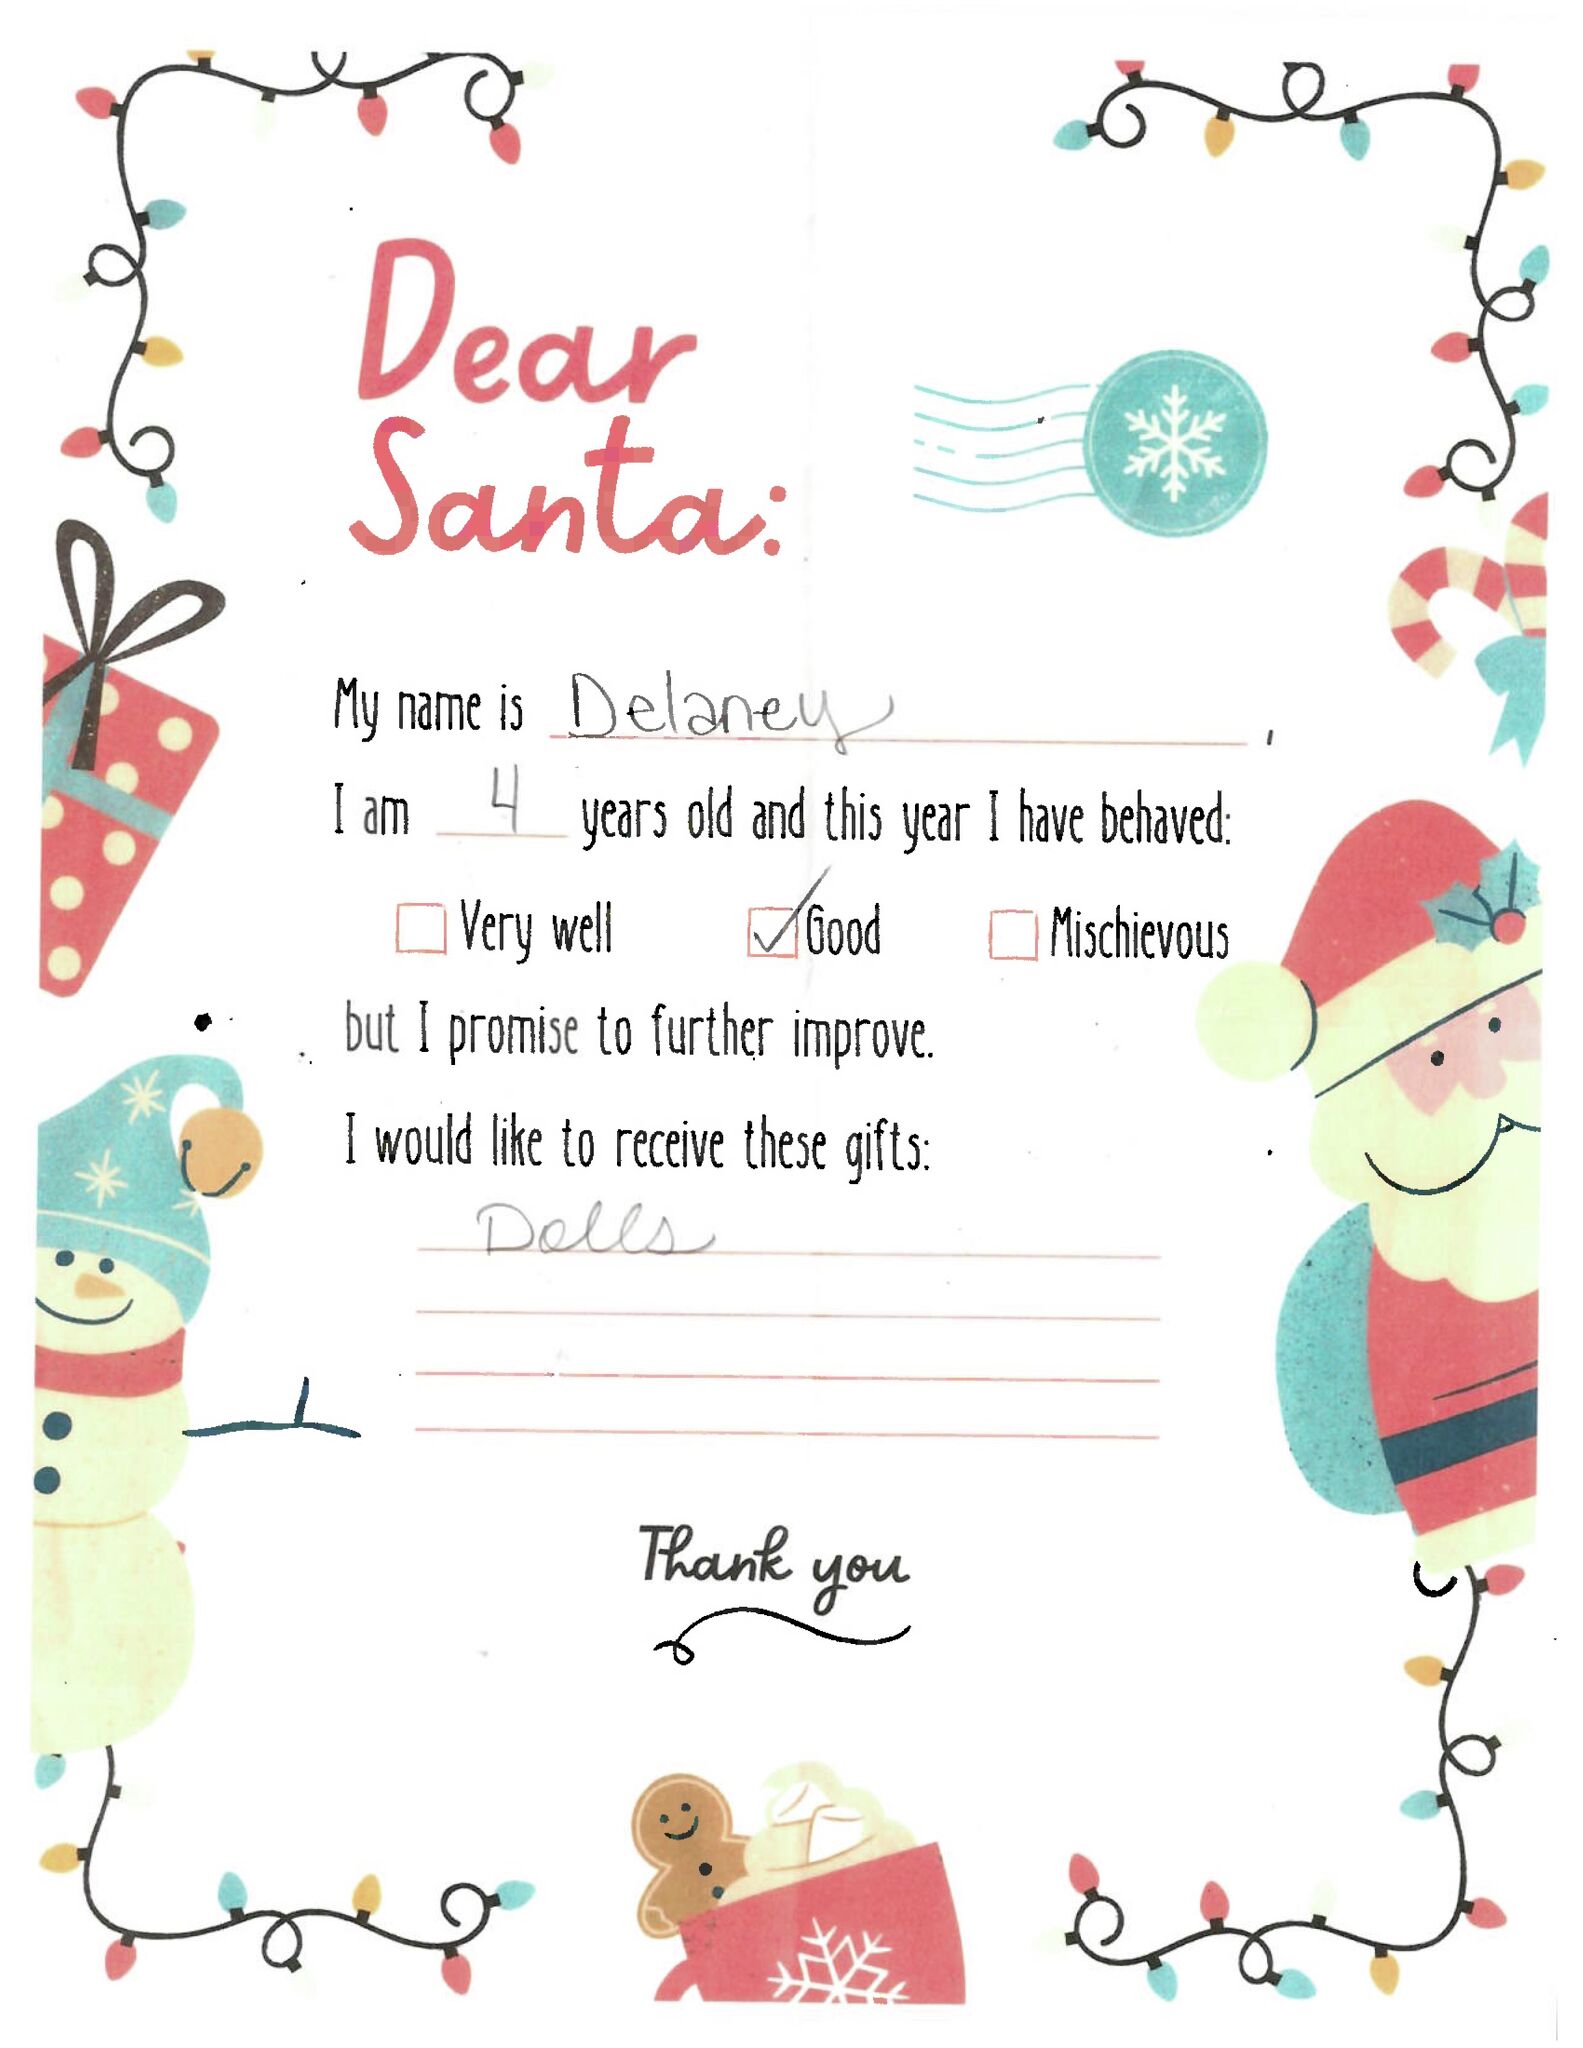 Dear
Santa:
My name is Delaney,
I am 4 years old and this year I have behaved:
Very well Good Mischievous
but I promise to further improve.
I would like to receive these gifts:
Dolls
Thank you